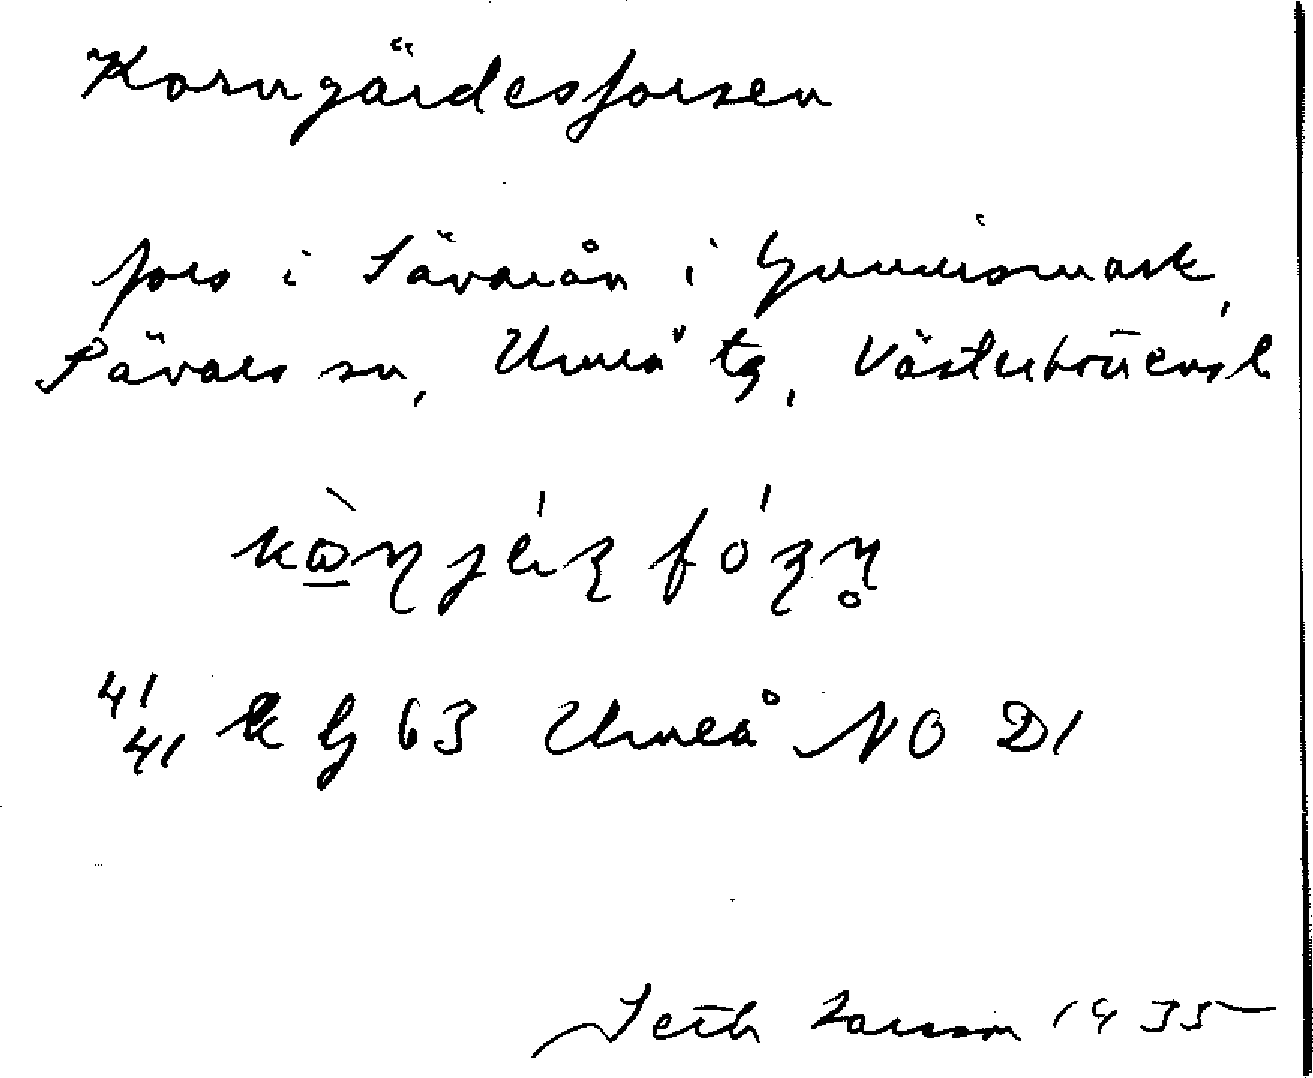 Korngärdesforsen
fors i Sävarån i Gunnismark,
Sävars sn, Umeå tg, Västerbottensl
41/41 k G 63 Umeå NO D1
Seth Larsson 1935